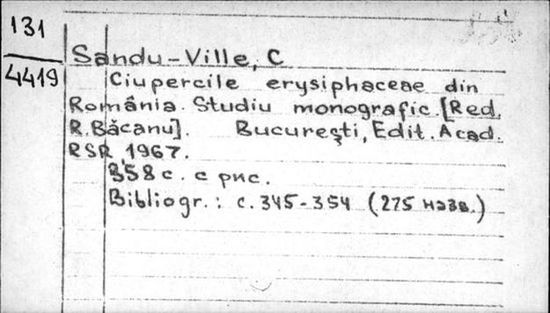 131
4419
Sandu-Ville, C
Ciupercile erysiphaceae din
România. Studiu monografic. [Red.
R. Băcanu]. Bucureşti, Edit. Acad.
RSR, 1967.
358 с. с рис.
Bibliogr.: с. 345-354 (275 назв.)